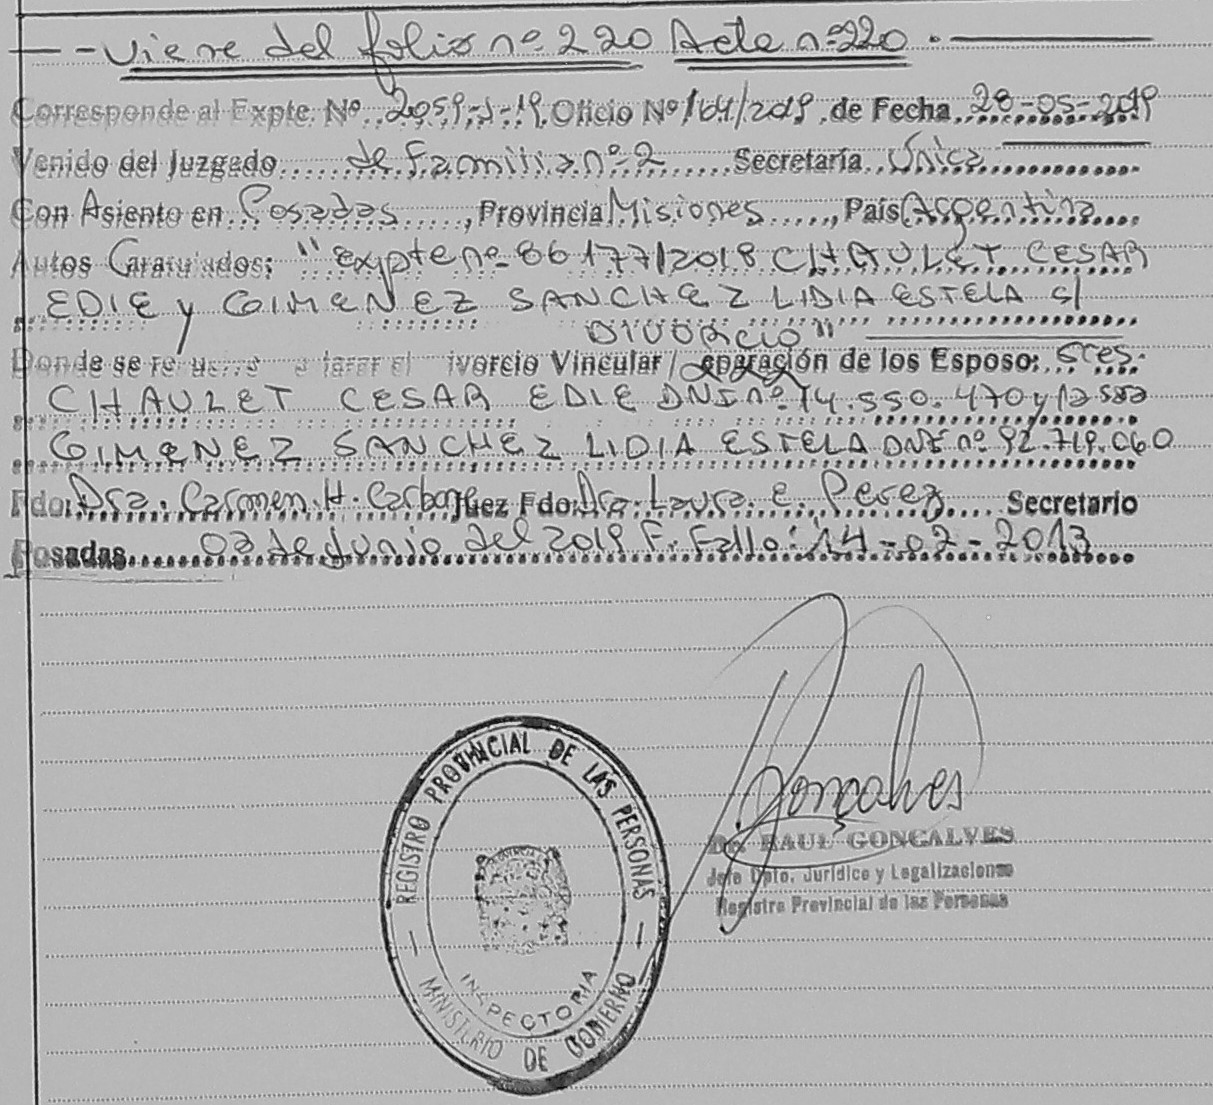 — - Viene del folio nº 220 Acta nº 220 . —
Corresponde al Expte. Nº 2059-J-19 Oficio Nº 1641/2019 de Fecha 28-05-2019
Venido del Juzgado de Familia nº 2 Secretaría Única
Con Asiento en Posadas, Provincia Misiones, País Argentina
Autos Caratulados: "expte nº 86177/2018 CHAULET CESAR
EDIE y GIMENEZ SANCHEZ LIDIA ESTELA s/
DIVORCIO"
Donde se el ivorcio Vincular / eparación de los Esposo: sres.
CHAULET CESAR EDIE DNI nº 14.550.470 y
GIMENEZ SANCHEZ LIDIA ESTELA DNI nº 92.719.060
Fdo: Dra. Carmen H. Carbone Juez Fdo: Dra. Laura E. Perez Secretario
Posadas 03 de Junio del 2019 F. Fallo: 14-02-2013
REGISTRO PROVINCIAL DE LAS PERSONAS
INSPECTORIA
MINISTERIO DE GOBIERNO
Goncalves
Dr. RAUL GONCALVES
Jefe Dpto. Jurídico y Legalizaciones
Registro Provincial de las Personas